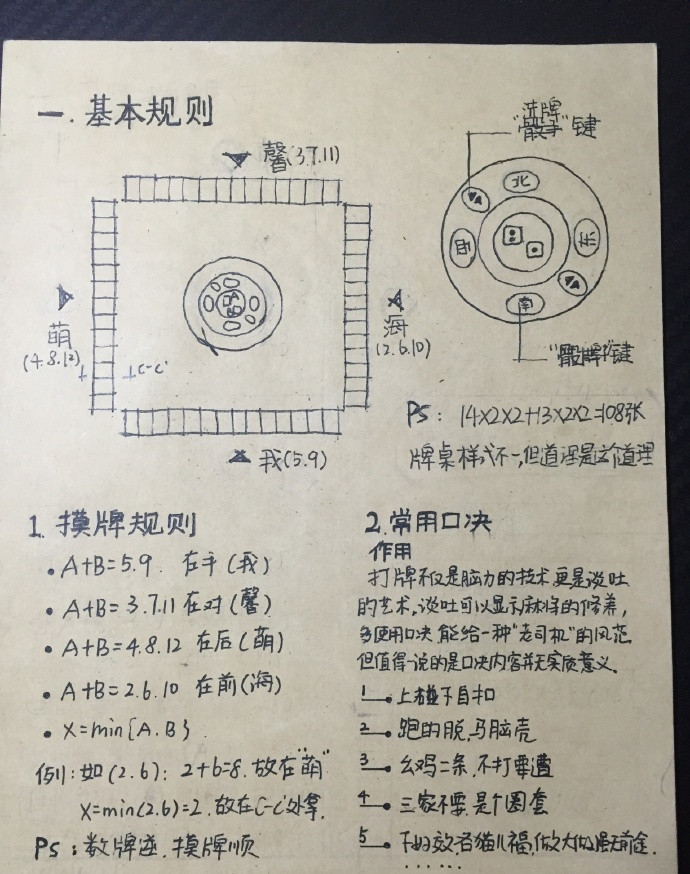 一.基本规则
馨(3.7.11)
萌
(4.8.12)
C-C'
海
(2.6.10)
我(5.9)
洗牌
"骰子"键
北
东
南
西
"骰牌"键
PS: 14×2×2+13×2×2=108张
牌桌样式不一,但道理是这个道理
1.摸牌规则
• A+B=5.9. 在手(我)
• A+B=3.7.11 在对(馨)
• A+B=4.8.12 在后(萌)
• A+B=2.6.10 在前(海)
• X=min{A.B}
例1:如(2.6): 2+6=8.放在"萌"
X=min(2.6)=2.放在C-C'处拿.
PS:数牌逆.摸牌顺
2.常用口决
作用
打牌不仅是脑力的技术,更是谈吐
的艺术,谈吐可以显示麻将的修养,
多使用口决 能给一种"老司机"的风范
但值得一说的是口决内容并无实质意义.
1—.上碰下自扣
2—.跑的脱,马脑壳
3—.幺鸡二条,不打要遭
4—.三家不要,是个圈套
5—.
......